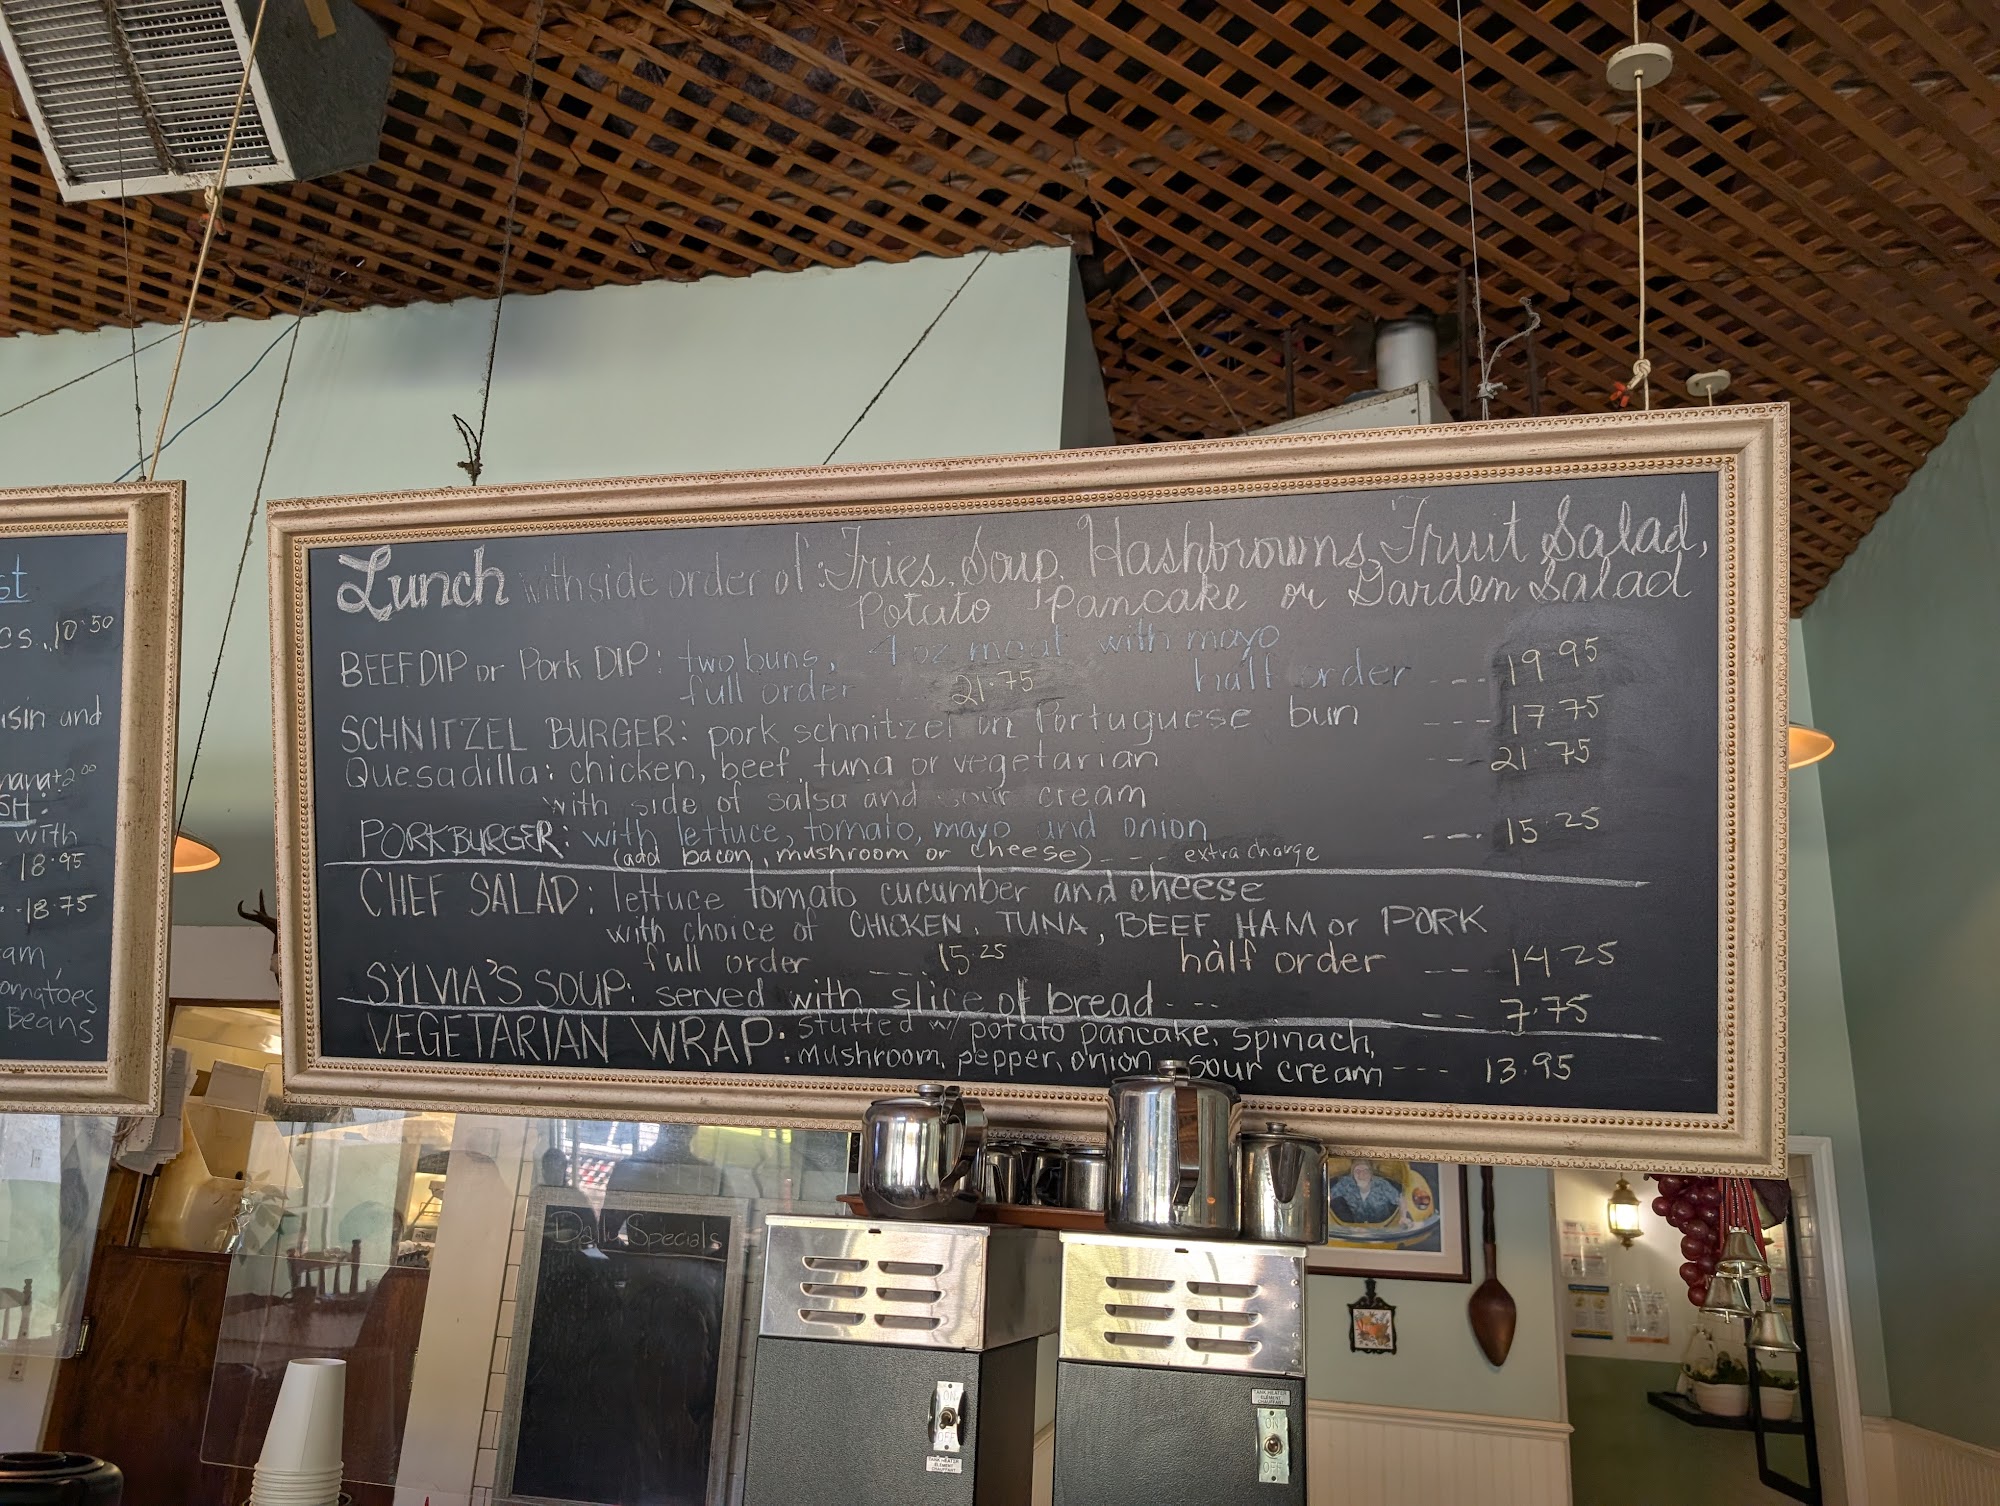 st
cs.. 10.50
isin and
nana+2.00
SH:
with
18.95
- 18.75
am,
omatoes
Beans
Lunch with side order of: Fries, Soup, Hashbrowns, Fruit Salad,
Potato Pancake or Garden Salad
BEEF DIP or Pork DIP: two buns, 4 oz meat with mayo
full order 21.75 half order --- 19.95
SCHNITZEL BURGER: pork schnitzel on Portuguese bun --- 17.75
Quesadilla: chicken, beef, tuna or vegetarian --- 21.75
with side of salsa and sour cream
PORK BURGER: with lettuce, tomato, mayo and onion ---. 15.25
(add bacon, mushroom or cheese) - - - extra charge
CHEF SALAD: lettuce tomato cucumber and cheese
with choice of CHICKEN, TUNA, BEEF, HAM or PORK
full order ---. 15.25 half order --- 14.25
SYLVIA'S SOUP: served with slice of bread - - - -- 7.75
VEGETARIAN WRAP: stuffed w/ potato pancake, spinach,
mushroom, pepper, onion, sour cream --- 13.95
Daily Specials
ON
OFF
TANK HEATER
ELEMENT
CHAUFFANT
TANK HEATER
ELEMENT
CHAUFFANT
ON
OFF